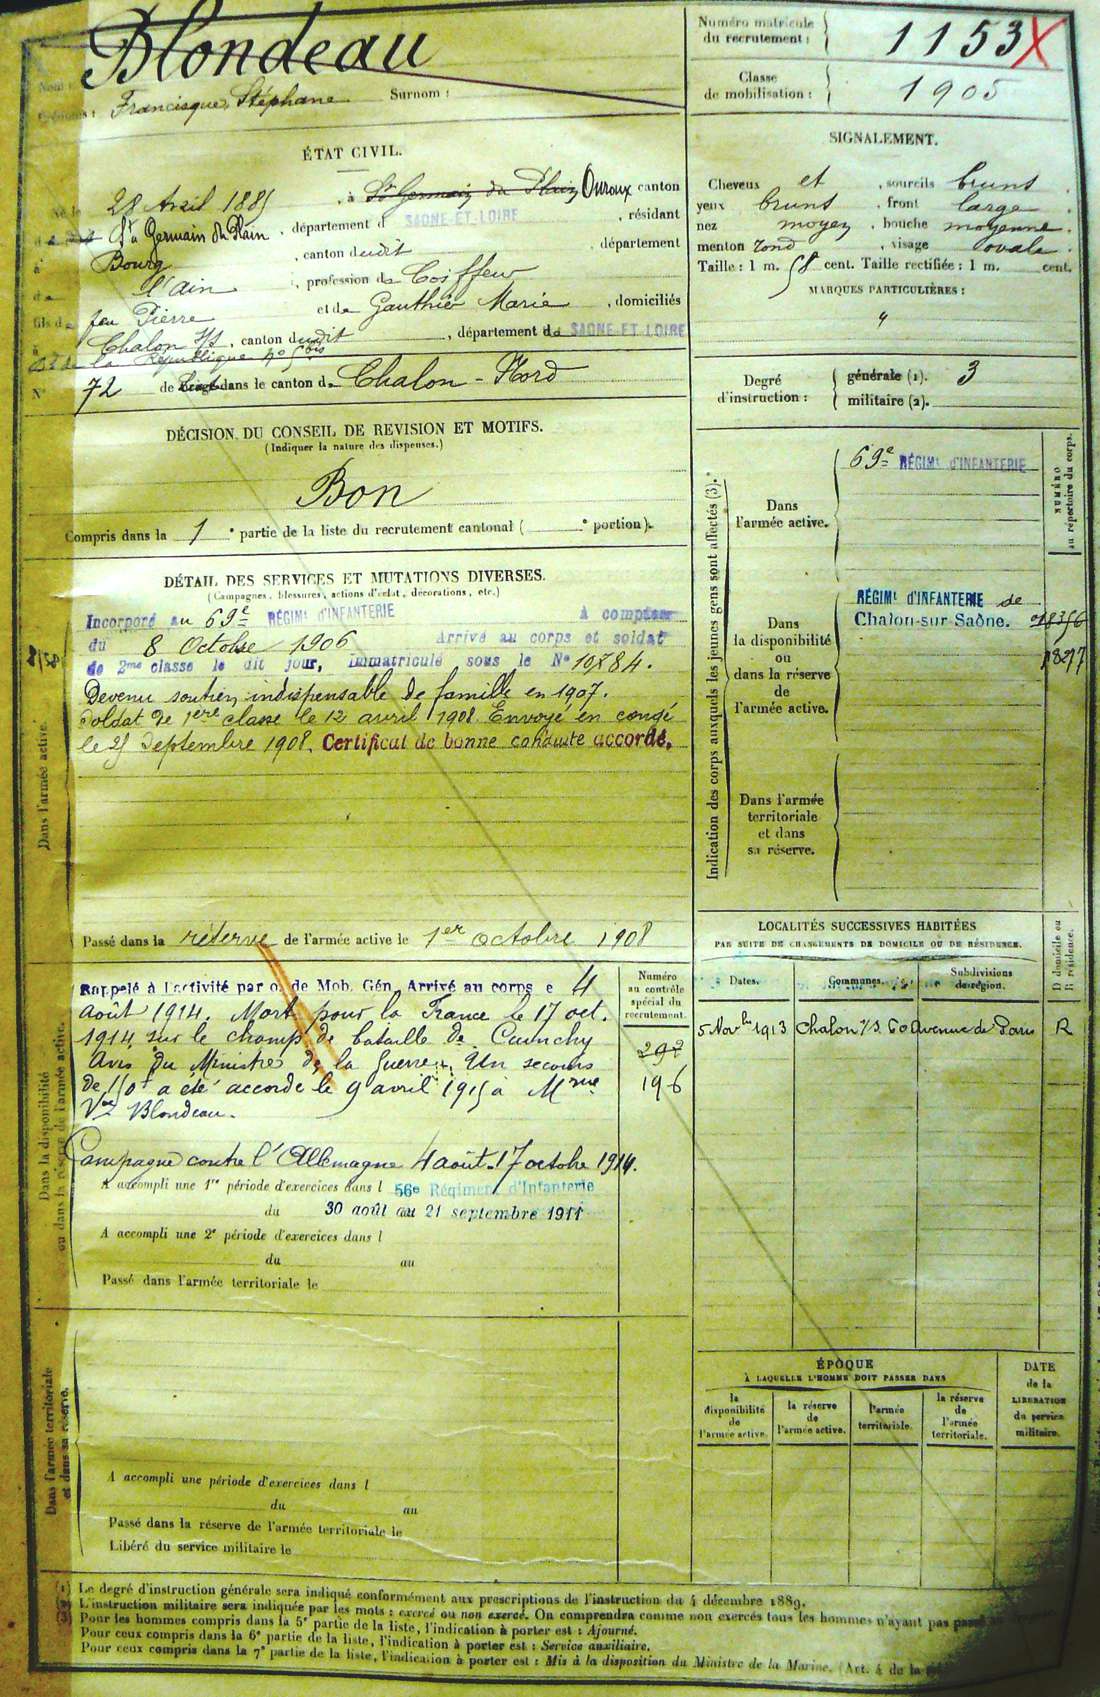 Nom : Blondeau
Prénoms : Francisque, Stéphane Surnom :
Numéro matricule du recrutement : 1153 X
Classe de mobilisation : 1905
ÉTAT CIVIL.
Né le 28 Avril 1885, à St Germain du Plain Ouroux canton
de St Germain du Plain, département d SAONE-ET-LOIRE, résidant
à Bourg, canton dudit, département
de l'Ain, profession de Coiffeur
fils de feu Pierre et de Gauthier Marie, domiciliés
à Chalon s/s, canton dudit, département de SAONE-ET-LOIRE
la République no 5 bis
N° 72 de tirage dans le canton de Chalon-Nord
SIGNALEMENT.
Cheveux et, sourcils bruns.
yeux bruns, front large
nez moyen, bouche moyenne.
menton rond, visage ovale.
Taille : 1 m. 58 cent. Taille rectifiée : 1 m. cent.
MARQUES PARTICULIÈRES :
"
Degré d'instruction : générale (1). 3
militaire (2).
DÉCISION DU CONSEIL DE REVISION ET MOTIFS.
(Indiquer la nature des dispenses.)
Bon
Compris dans la 1e partie de la liste du recrutement cantonal ( e portion).
DÉTAIL DES SERVICES ET MUTATIONS DIVERSES.
(Campagnes, blessures, actions d'éclat, décorations, etc.)
Dans l'armée active.
Incorporé au 69e RÉGIMt d'INFANTERIE à compter
du 8 Octobre 1906 Arrivé au corps et soldat
de 2me classe le dit jour, Immatriculé sous le No 10784.
Devenu soutien indispensable de famille en 1907.
Soldat de 1ère classe le 12 avril 1908. Envoyé en congé
le 25 Septembre 1908. Certificat de bonne conduite accordé.
Passé dans la réserve de l'armée active le 1er octobre 1908
Indication des corps auxquels les jeunes gens sont affectés (3).
NUMÉRO au répertoire du corps.
Dans l'armée active.
69e RÉGIMt d'INFANTERIE
Dans la disponibilité ou dans la réserve de l'armée active.
RÉGIMt d'INFANTERIE de
Chalon-sur-Saône.
Dans l'armée territoriale et dans sa réserve.
Dans la disponibilité ou dans la réserve de l'armée active.
Rappelé à l'activité par o. de Mob. Gén. Arrivé au corps e 4
août 1914. Mort pour la France le 17 oct.
1914 sur le champ de bataille de Cuinchy
Avis du Ministre de la Guerre. Un secours
de 150f a été accordé le 9 avril 1915 à Mme
Vve Blondeau.
Campagne contre l'Allemagne 4 août-17 octobre 1914.
Numéro au contrôle spécial du recrutement.
292
196
A accompli une 1re période d'exercices dans l 56e Régiment d'Infanterie
du 30 août au 21 septembre 1911
A accompli une 2e période d'exercices dans l
du au
Passé dans l'armée territoriale le
LOCALITÉS SUCCESSIVES HABITÉES
PAR SUITE DE CHANGEMENTS DE DOMICILE OU DE RÉSIDENCE.
Dates. Communes. Subdivisions de région. D domicile ou R résidence.
5 Novbre 1913 Chalon s/s. 60 avenue de Paris R
Dans l'armée territoriale et dans sa réserve.
A accompli une période d'exercices dans l
du au
Passé dans la réserve de l'armée territoriale le
Libéré du service militaire le
ÉPOQUE
À LAQUELLE L'HOMME DOIT PASSER DANS
la disponibilité de l'armée active.
la réserve de l'armée active.
l'armée territoriale.
la réserve de l'armée territoriale.
DATE de la LIBÉRATION du service militaire.
(1) Le degré d'instruction générale sera indiqué conformément aux prescriptions de l'instruction du 4 décembre 1889.
(2) L'instruction militaire sera indiquée par les mots : exercé ou non exercé. On comprendra comme non exercés tous les hommes n'ayant pas
(3) Pour les hommes compris dans la 5e partie de la liste, l'indication à porter est : Ajourné.
Pour ceux compris dans la 6e partie de la liste, l'indication à porter est : Service auxiliaire.
Pour ceux compris dans la 7e partie de la liste, l'indication à porter est : Mis à la disposition du Ministre de la Marine. (Art. 4 de la